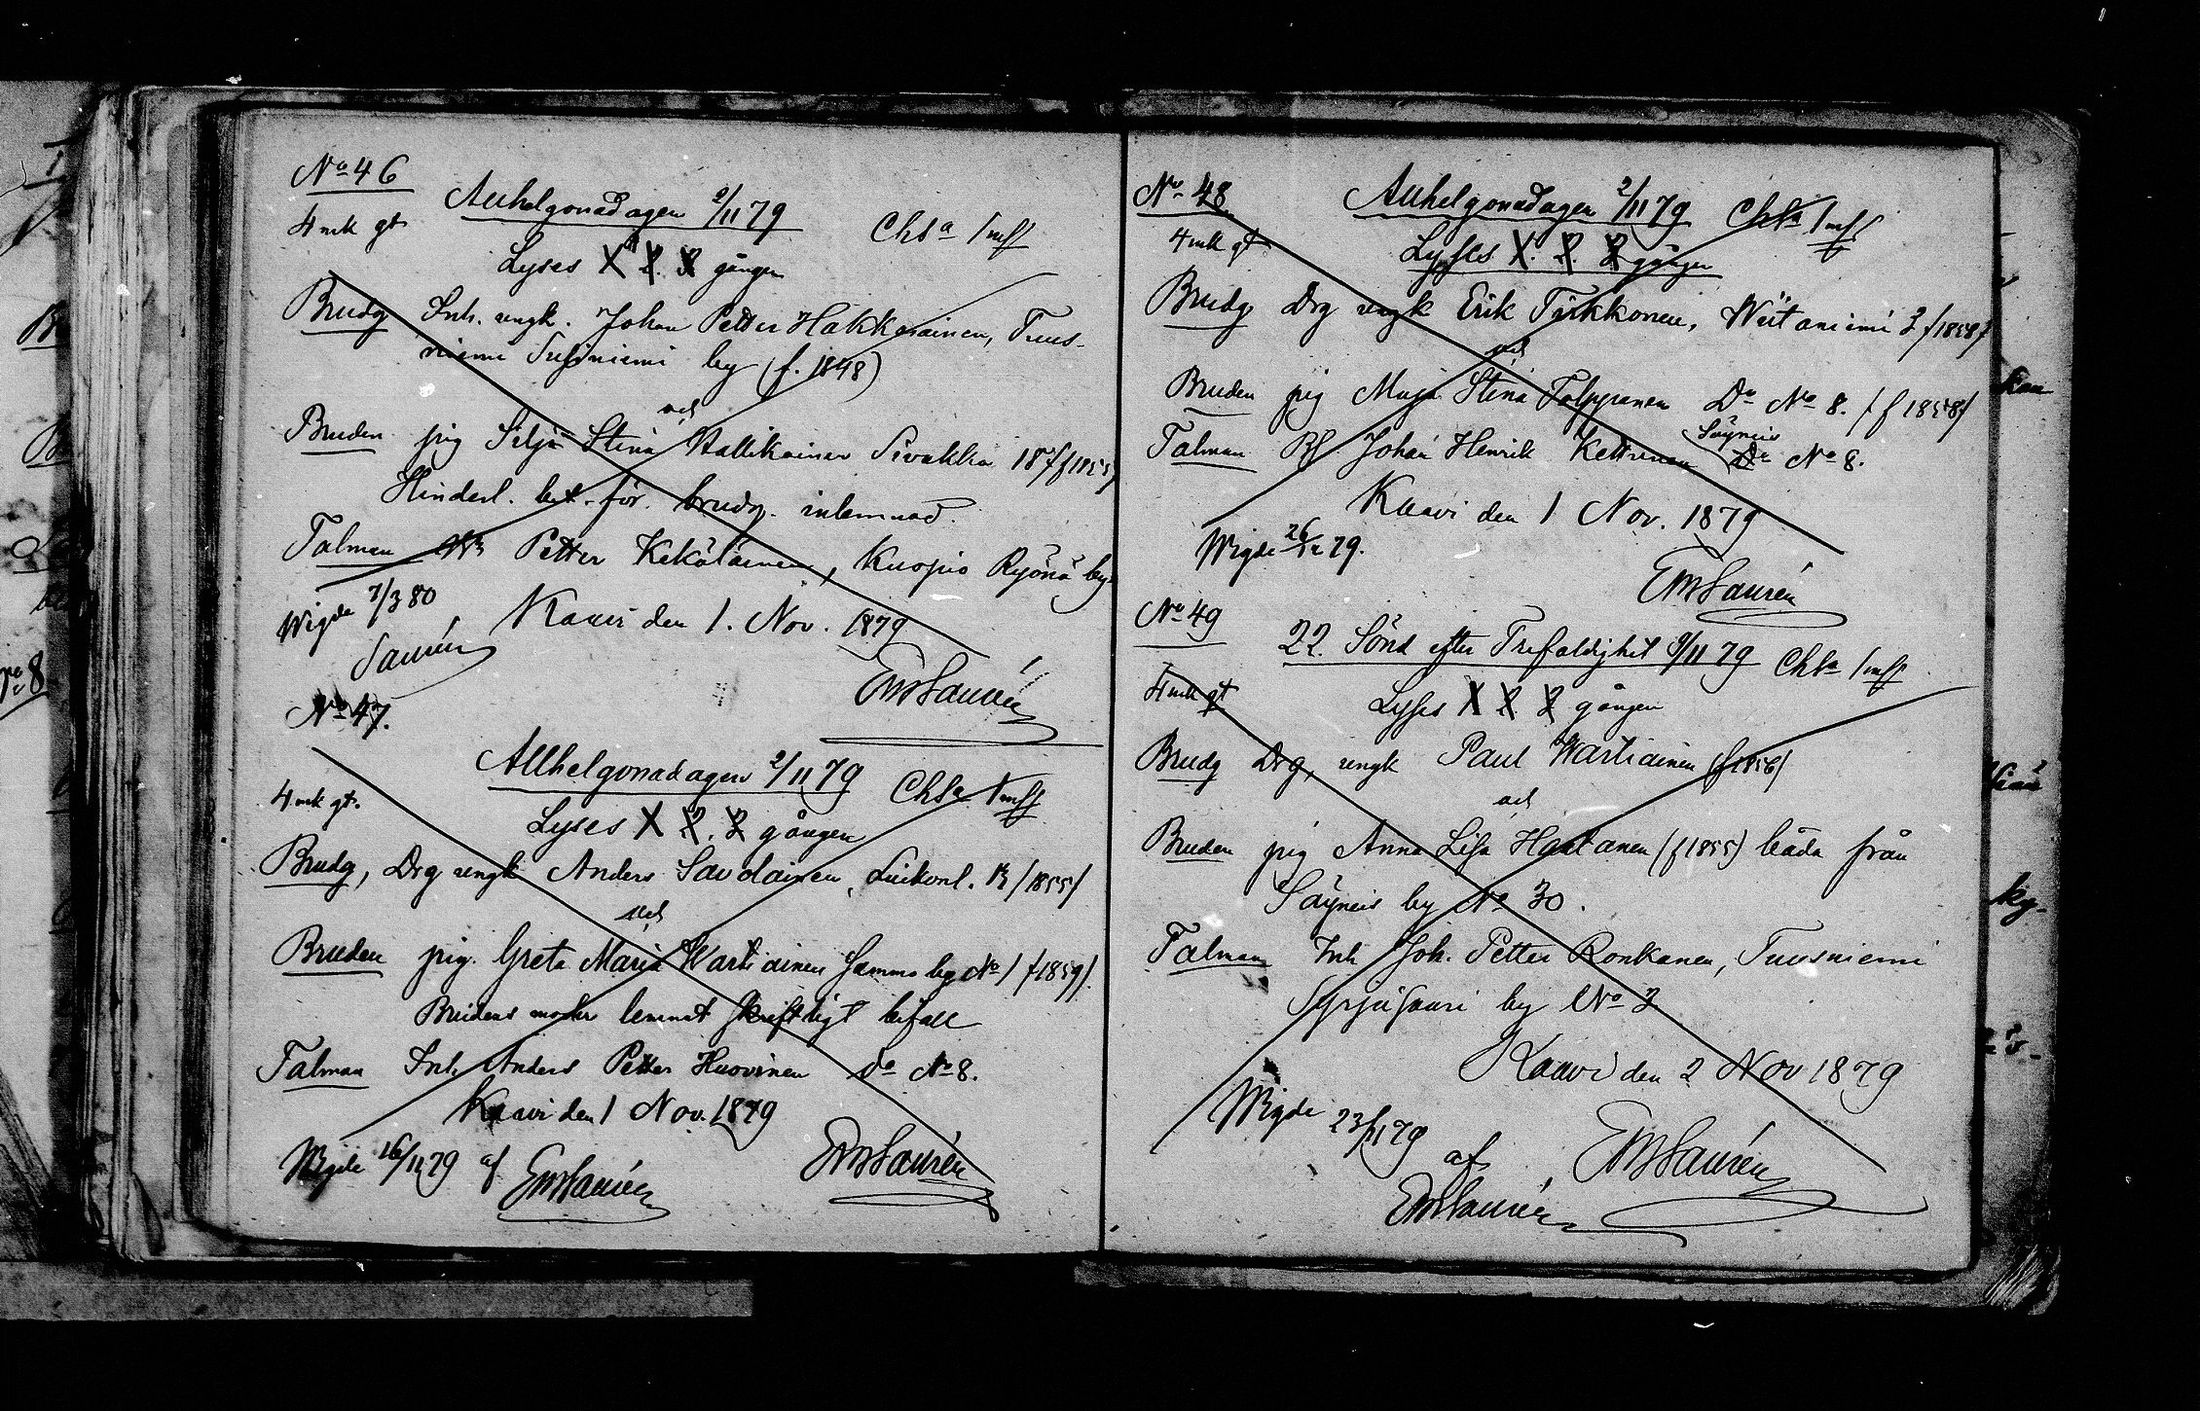 No 46
Allhelgonadagen 2/11 79
4 mk gt.
Chsa 1 mk
Lyses 1. 2. 3 gången
Brudg Inh. ungk. Johan Petter Hakkarainen, Tuus-
niemi Susiniemi by (f. 1848)
och
Bruden pig Silja Stina Hallikainen Sivakka 18 / f 1855
Hinderl. bet. för brudg. inlemnad.
Talman Petter Kekäläinen, Kuopio Ryönä by
Wigde 7/3 80
Kaavi den 1. Nov. 1879
Saurén
EWSaurén
No 47.
Allhelgonadagen 2/11 79
4 mk gt.
Chsa 1 mk
Lyses 1 2. 3 gången
Brudg, Drg ungk Anders Savolainen, Luikonl. 13 /1855/
och
Bruden pig. Greta Maria Wartiainen Jammo by No 1 f 1859/
Brudens moder lemnat skriftligt bifall
Talman Inh. Anders Petter Huovinen Do No 8.
Kaavi den 1 Nov. 1879
Wigde 16/11 79 af EWSaurén
EWSaurén
No 48
Allhelgonadagen 2/11 79
4 mk gt
Chsa 1 mk
Lyses 1. 2. 3 gången
Brudg Drg ungk Erik Tirkkonen, Wiitaniemi 3 /1858/
och
Bruden pig Maja Stina Tolppanen Do No 8. / f 1858/
Säyneis
Talman Bf. Johan Henrik Kettunen Do No 8.
Kaavi den 1 Nov. 1879
Wigde 26/12 79.
EWSaurén
No 49
22. Sönd efter Trefaldighet 9/11 79
Chsa 1 mk
4 mk gt
Lyses 1 2 3 gången
Brudg Drg, ungk Paul Wartiainen (f 1856)
och
Bruden pig Anna Lisa Haatanen (f 1855) båda från
Säyneis by No 30.
Talman Inh Joh. Petter Ronkanen, Tuusniemi
Syrjäsaari by No 3
Kaavi den 2 Nov 1879
Wigde 23/11 79
af
EWSaurén
EWSaurén